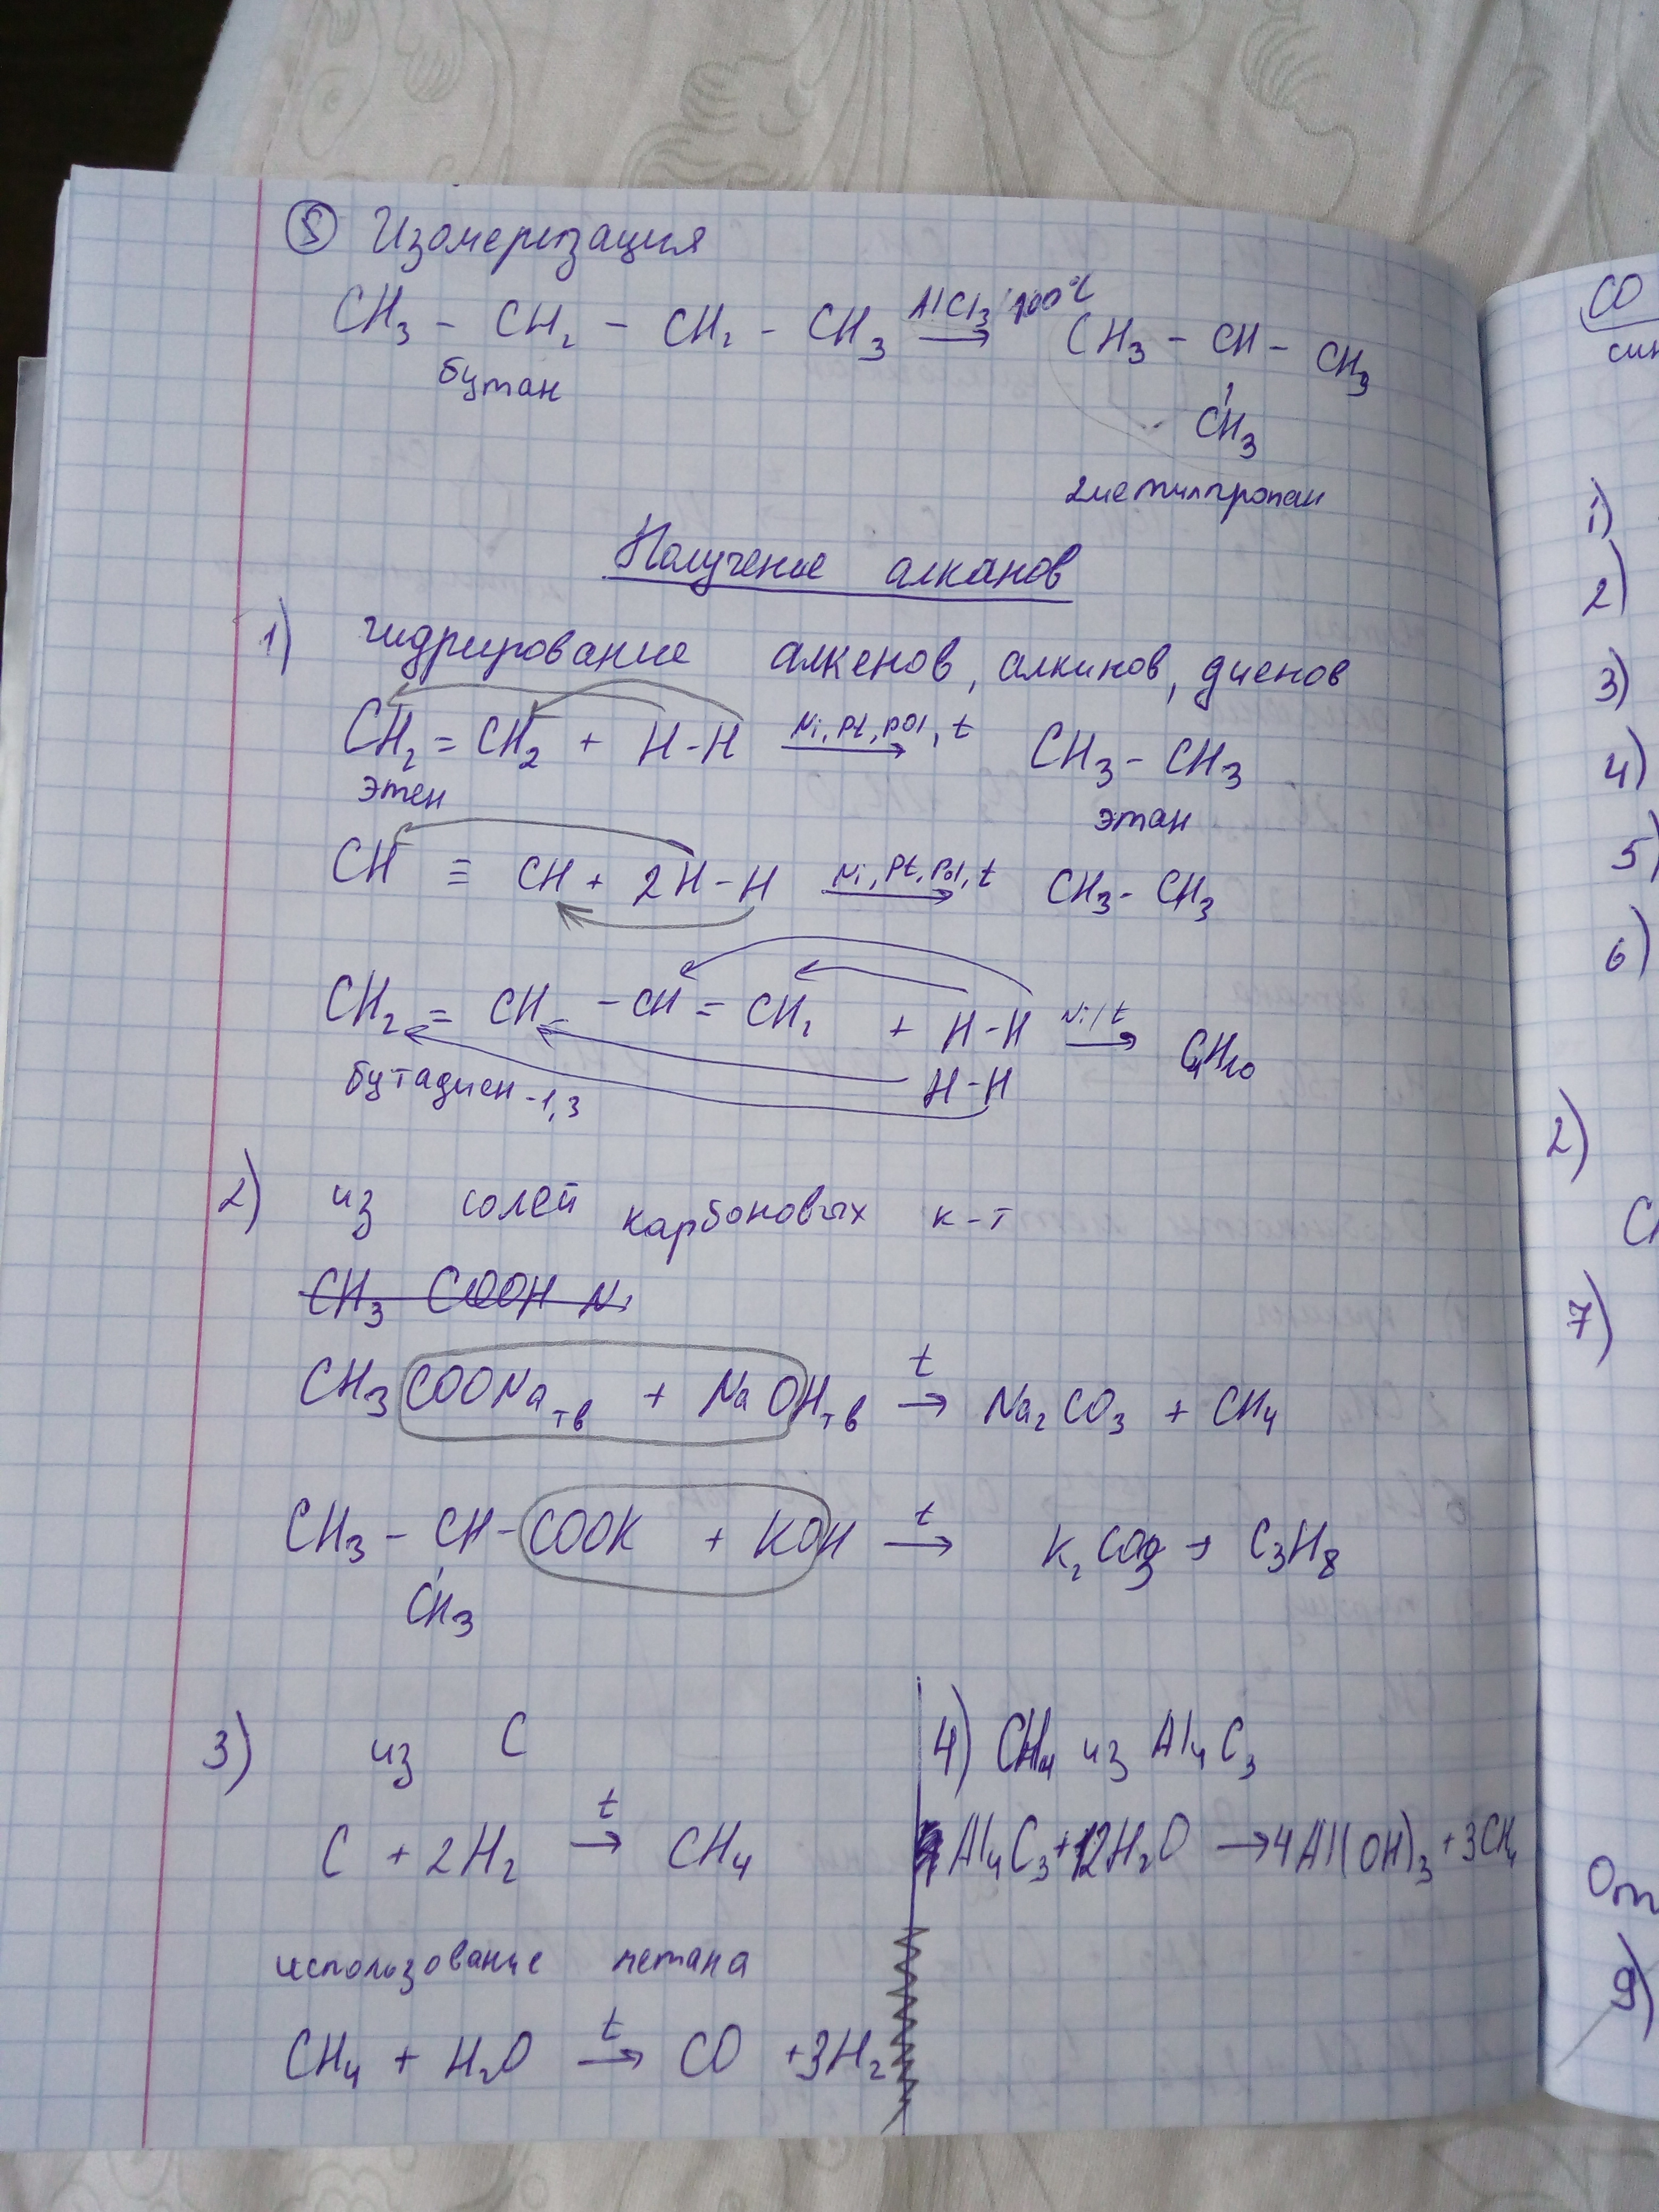 ⑤ Изомеризация
CH₃ – CH₂ – CH₂ – CH₃ AlCl₃, 100°C → CH₃ – CH – CH₃
CH₃
бутан
2метилпропан
Получение алканов
1) гидрирование алкенов, алкинов, диенов
CH₂ = CH₂ + H-H Ni, Pt, pd, t → CH₃ – CH₃
этен этан
CH ≡ CH + 2H-H Ni, Pt, Pd, t → CH₃ - CH₃
CH₂ = CH – CH = CH₂ + H-H Ni, t → C₄H₁₀
H-H
бутадиен -1,3
2) из солей карбоновых к-т
CH₃ COOH N
CH₃COONa тв + NaOH тв t → Na₂CO₃ + CH₄
CH₃ – CH – COOK + KOH t → K₂CO₃ + C₃H₈
CH₃
3) из C
C + 2H₂ t → CH₄
использование метана
CH₄ + H₂O t → CO + 3H₂
4) CH₄ из Al₄C₃
Al₄C₃ + 12H₂O → 4Al(OH)₃ + 3CH₄
CO
1)
2)
3)
4)
5)
6)
2)
7)
9)